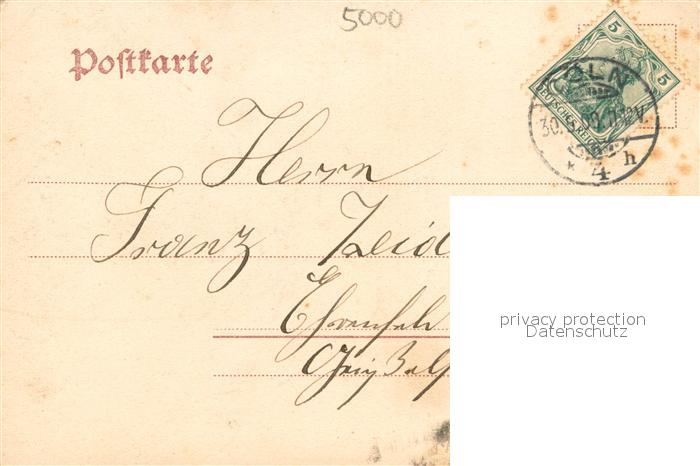 5000
Postkarte
5 5
DEUTSCHES REICH
CÖLN
* 4 h
Herrn
Franz Zeid
Ehrenfeld
privacy protection
Datenschutz